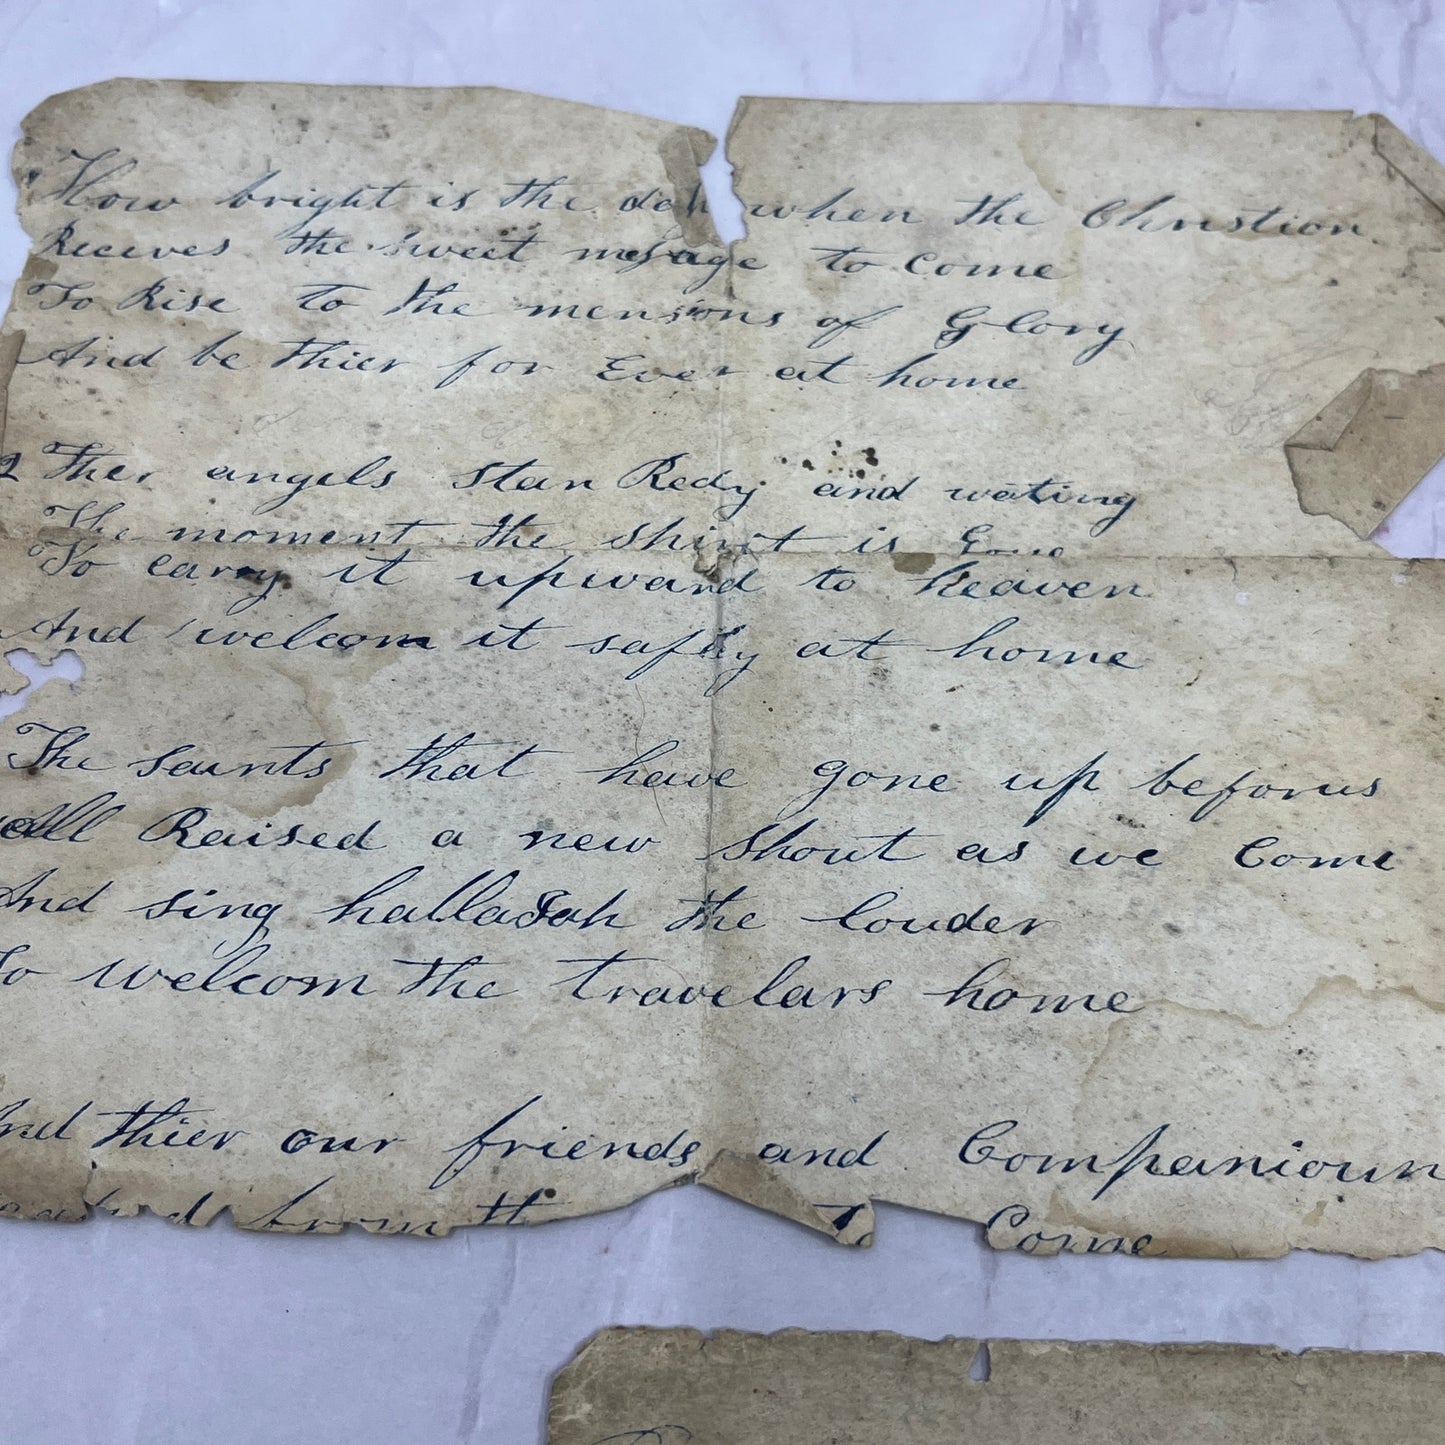 How bright is the day when the Christian
Receives the sweet message to Come
To Rise to the mensions of Glory
And be thier for Ever at home
2 Ther angels stan Redy and wating
The moment the Shirit is Gone
To carry it upward to heaven
And welcom it safly at home
The saints that have gone up beforus
All Raised a new shout as we Come
And sing hallaJah the louder
To welcom the travelars home
And thier our friends and Companioun
from Come